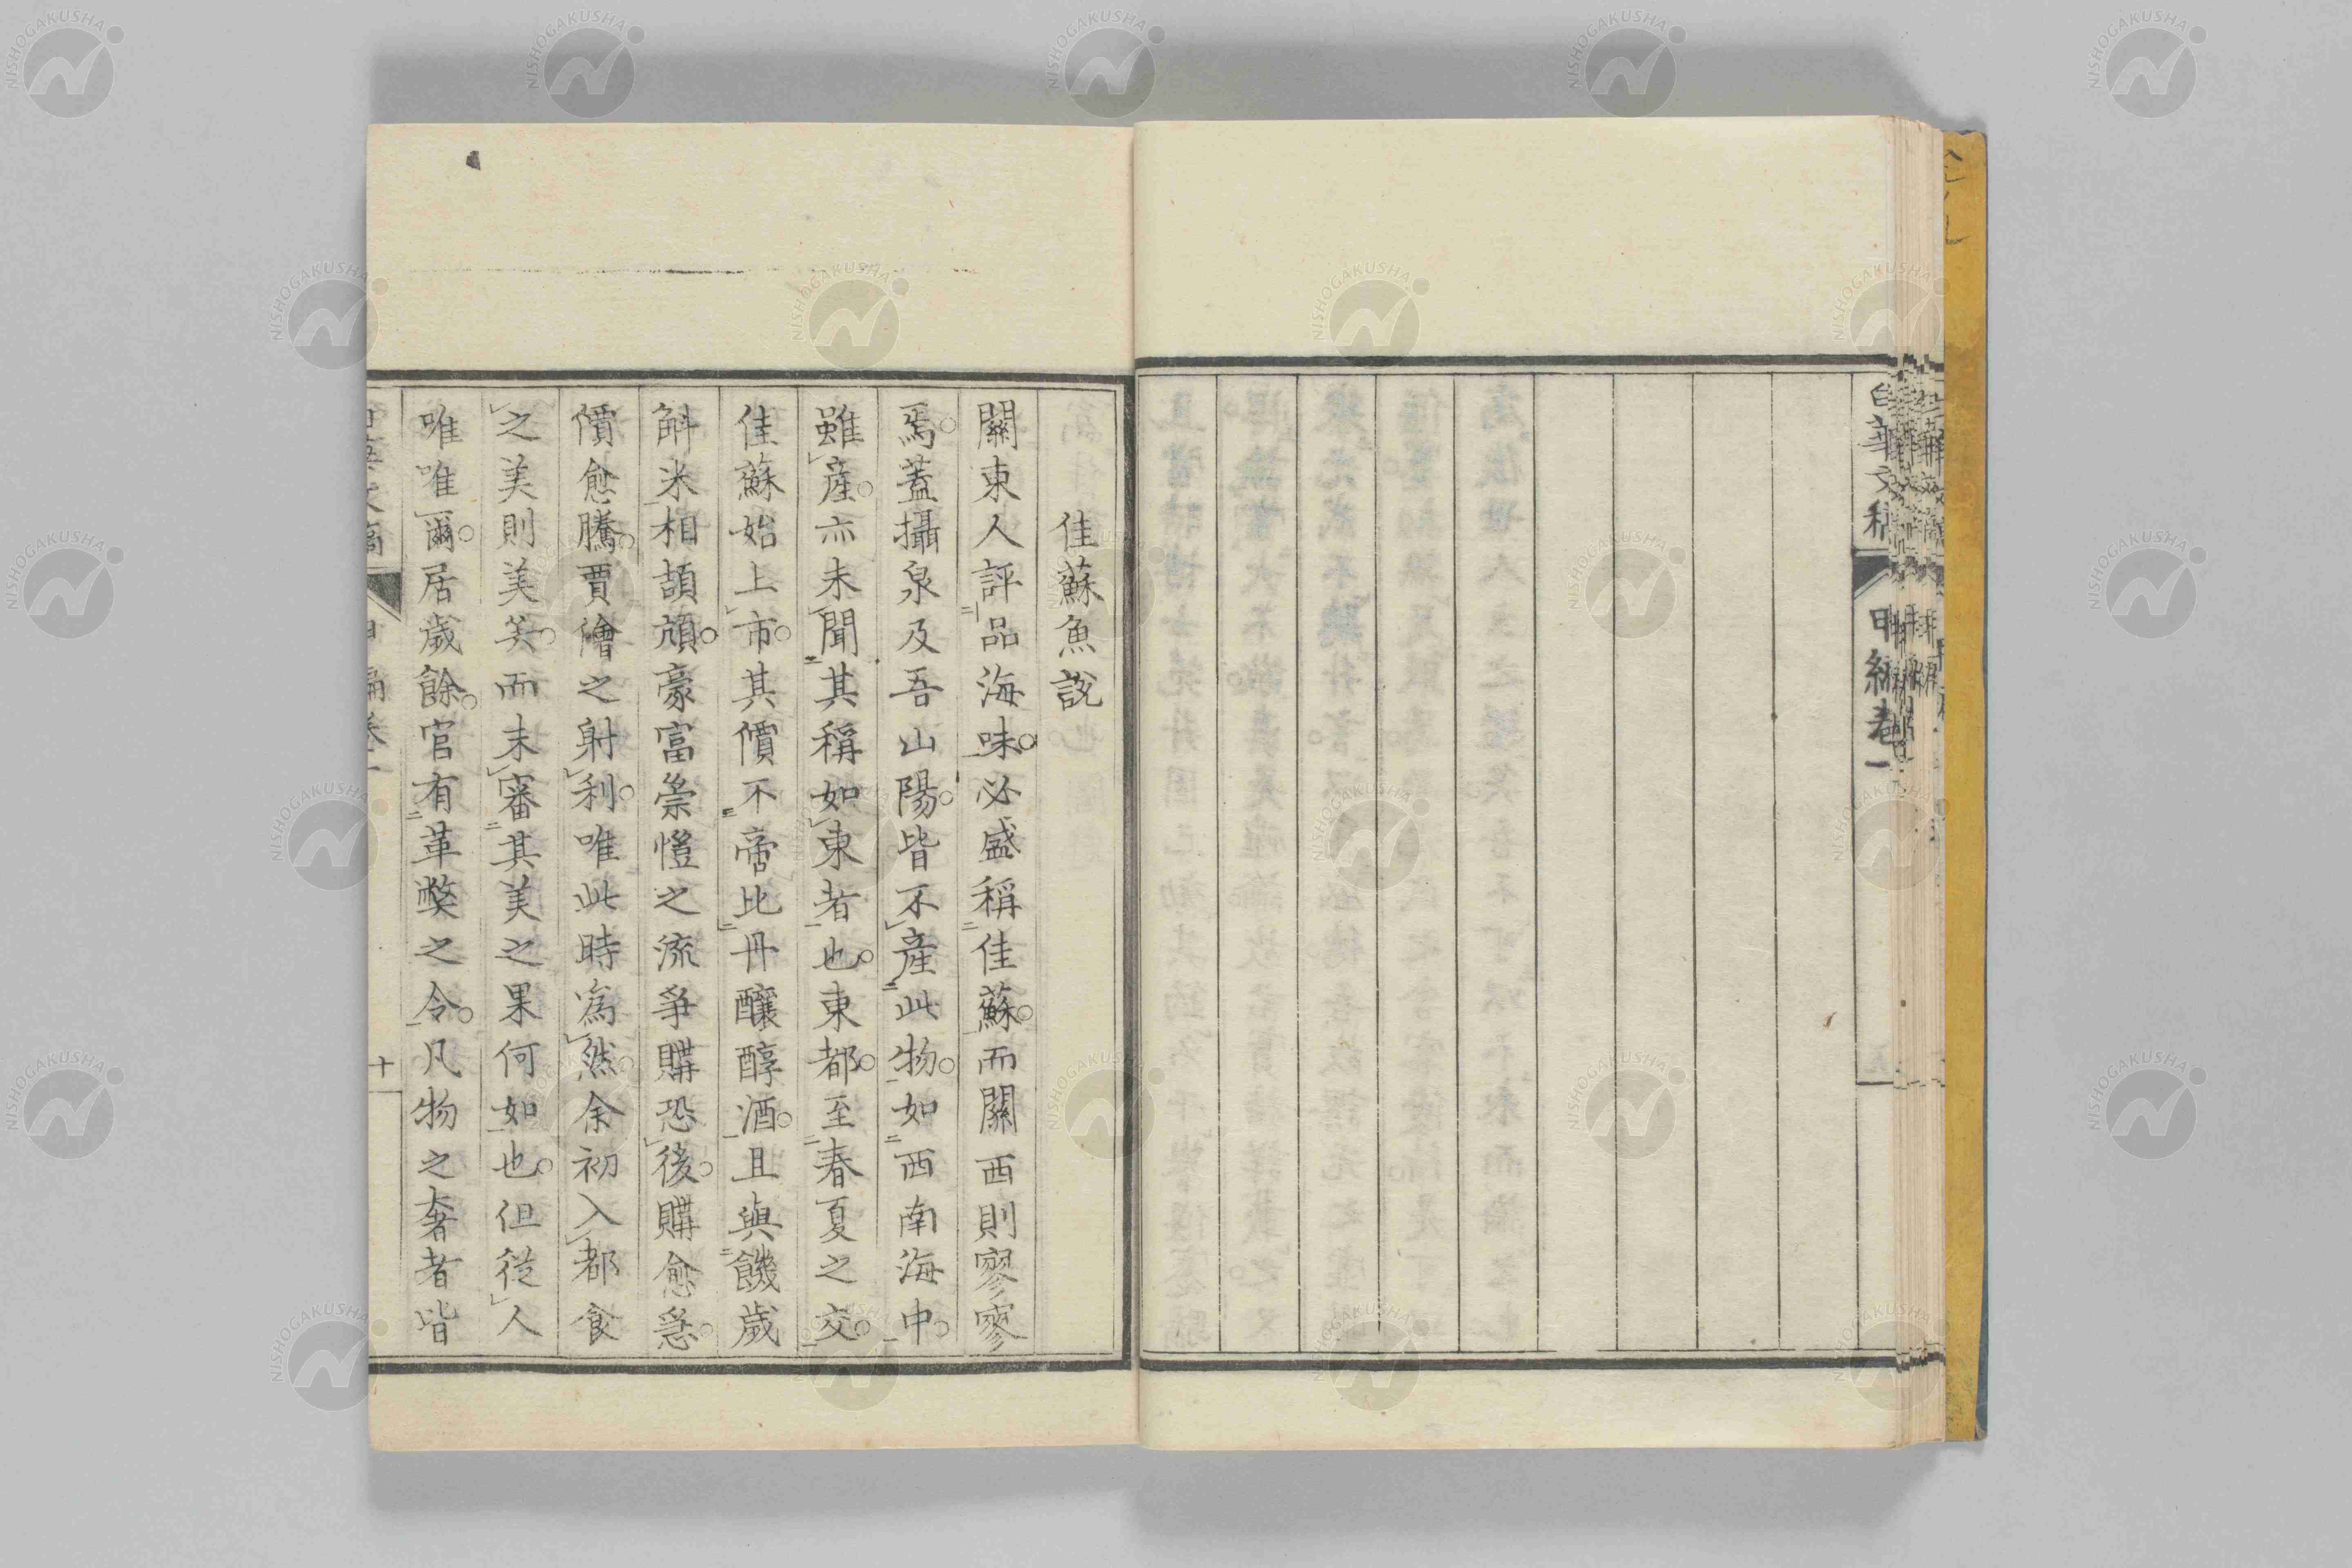 佳蘇魚說
關東人評品海味。必盛稱佳蘇。而關西則寥寥
焉。蓋攝泉及吾山陽。皆不產此物。如西南海中。
雖產。亦未聞其稱如東者也。東都。至春夏之交。
佳蘇始上市。其價不啻比丹釀醇酒。且與饑歲
斛米相頡頏。豪富豢愷之流爭購恐後。購愈急。
價愈騰。賈儈之射利。唯此時為然。余初入都食
之美則美矣。而未審其美之果何如也。但從人
唯唯爾。居歲餘。官有革弊之令。凡物之奢者皆
甲編卷一
十
NISHOGAKUSHA